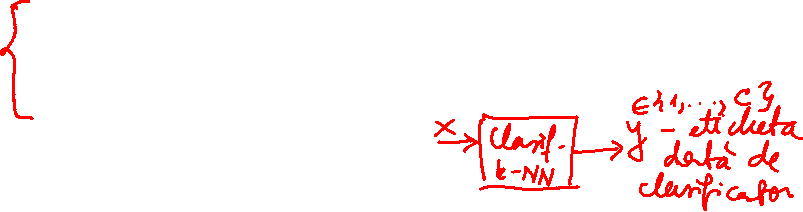 ∈{1,...,C}
x
Clasif.
k-NN
y - eticheta
dată de
clasificator